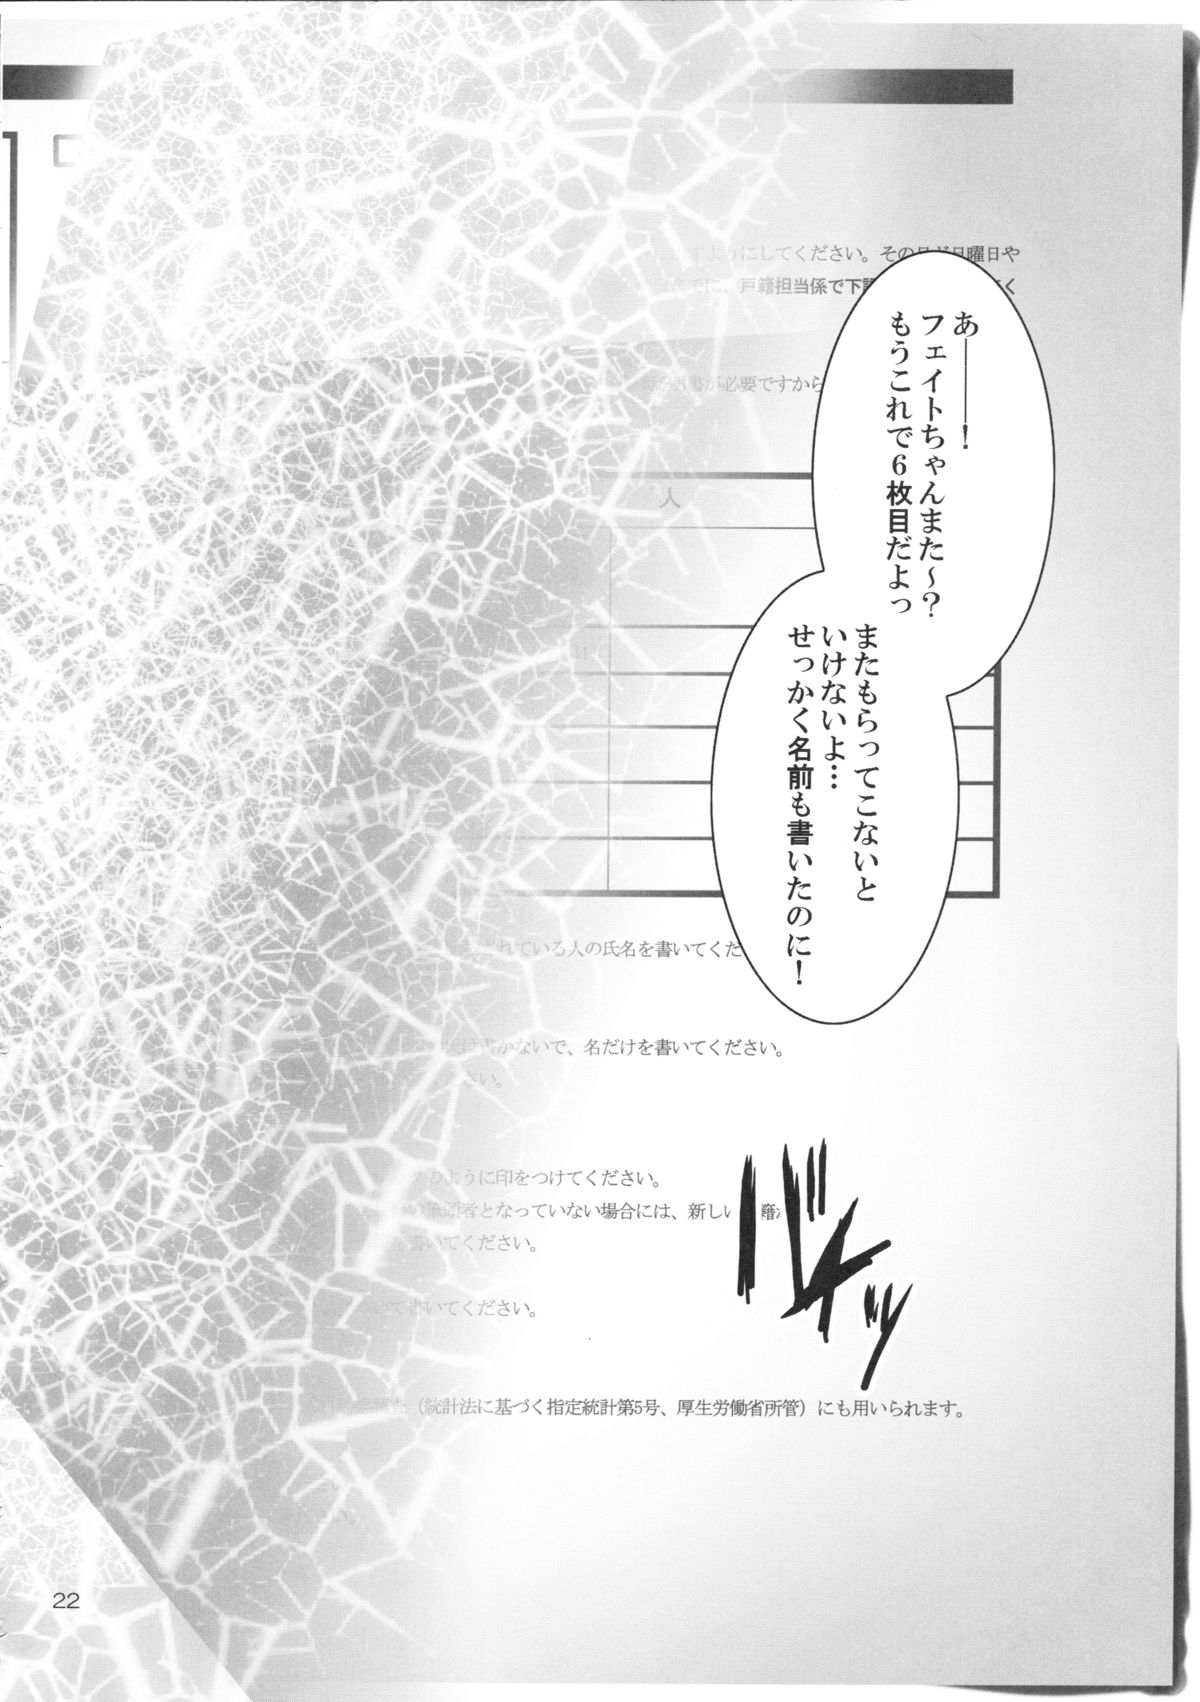 あ――――！
フェイトちゃんまた～？
もうこれで６枚目だよっ
またもらってこないと
いけないよ…
せっかく名前も書いたのに！
すようにしてください。その日が日曜日や
でに、戸籍担当係で下
く
が必要ですから
人
されている人の氏名を書いてくだ
書かないで、名だけを書いてください。
ださい。
のように印をつけてください。
筆頭者となっていない場合には、新しい
書いてください。
て書いてください。
調査（統計法に基づく指定統計第5号、厚生労働省所管）にも用いられます。
い。
22